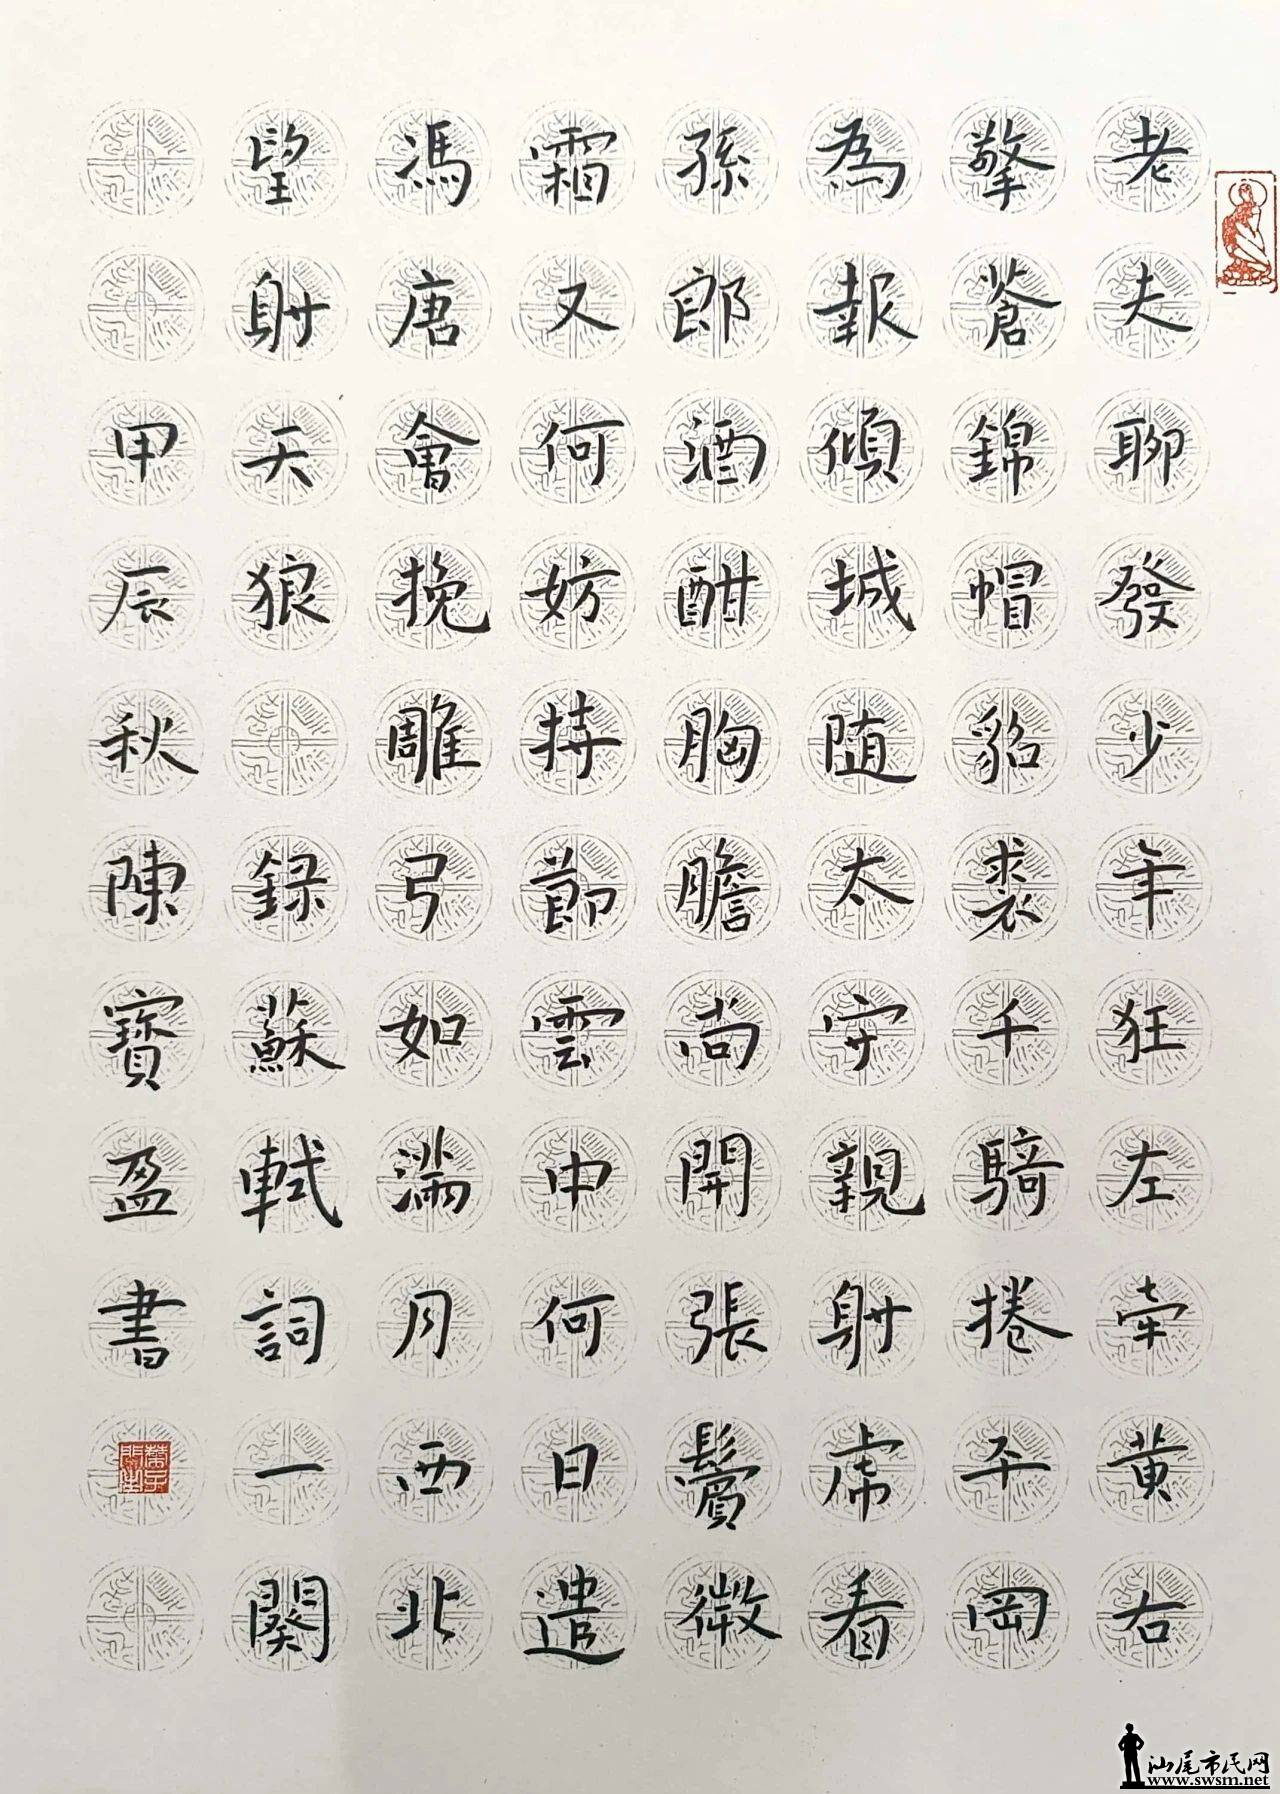 老夫聊發少年狂左牽黄右
擎蒼錦帽貂裘千騎捲平岡
為報傾城随太守親射虎看
孫郎酒酣胸膽尚開張鬢微
霜又何妨持節雲中何日遣
馮唐會挽雕弓如滿月西北
望射天狼 録蘇軾詞一闋
甲辰秋陳寶盈書
汕尾市民网
www.swsm.net